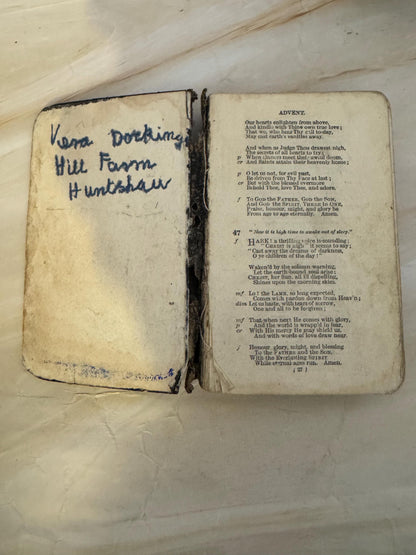 Vera Docking
Hill Farm
Huntshaw
ADVENT.
Our hearts enlighten from above,
And kindle with Thine own true love;
That we, who hear Thy call to-day,
May cast earth's vanities away.
And when as Judge Thou drawest nigh,
The secrets of all hearts to try;
cr When sinners meet their awful doom,
cr And Saints attain their heavenly home;
p O let us not, for evil past,
Be driven from Thy Face at last;
cr But with the blessed evermore
Behold Thee, love Thee, and adore.
f To GOD the FATHER, GOD the SON,
And GOD the SPIRIT, THREE in ONE,
Praise, honour, might, and glory be
From age to age eternally. Amen.
47 "Now it is high time to awake out of sleep."
f HARK! a thrilling voice is sounding;
"CHRIST is nigh" it seems to say;
"Cast away the dreams of darkness,
O ye children of the day!"
Waken'd by the solemn warning,
Let the earth-bound soul arise;
CHRIST, her Sun, all ill dispelling,
Shines upon the morning skies.
mf Lo! the LAMB, so long expected,
Comes with pardon down from Heav'n;
dim Let us haste, with tears of sorrow,
One and all to be forgiven;
mf That when next He comes with glory,
p And the world is wrapp'd in fear,
cr With His mercy He may shield us,
And with words of love draw near.
f Honour, glory, might, and blessing
To the FATHER and the SON,
With the Everlasting SPIRIT
While eternal ages run. Amen.
( 37 )